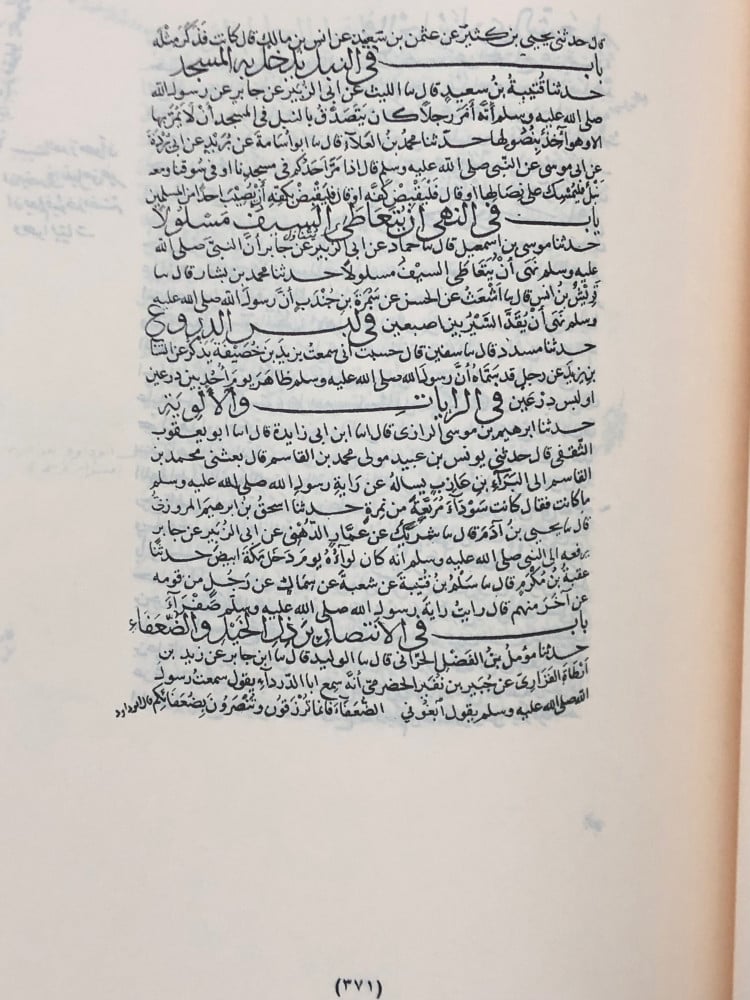 قال حدثني يحيى بن كثير عن عثمن بن سعيد عن انس بن مالك قال كانت فذكر مثله
باب في النبل يدخل به المسجد
حدثنا قتيبة بن سعيد قال نا الليث عن ابى الزبير عن جابر عن رسول الله
صلى الله عليه وسلم أنه أمر رجلا كان يتصدق بالنبل في المسجد أن لا يمر بها
الا وهو آخذ بنصولها حدثنا محمد بن العلاء قال نا ابو اسامة عن بريد عن ابى بردة
عن ابى موسى عن النبي صلى الله عليه وسلم قال اذا مر أحدكم في مسجدنا او في سوقنا ومعه
نبل فليمسك على نصالها او قال فليقبض كفه او قال فليقبض بكفه أن يصيب احدا من المسلمين
باب في النهي أن يتعاطى السيف مسلولا
حدثنا موسى بن اسمعيل قال نا حماد عن ابى الزبير عن جابر أن النبي صلى الله
عليه وسلم نهى أن يتعاطى السيف مسلولا حدثنا محمد بن بشار قال نا
قريش بن انس قال نا أشعث عن الحسن عن سمرة بن جندب أن رسول الله صلى الله عليه
وسلم نهى أن يقد السير بين اصبعين في لبس الدروع
حدثنا مسدد قال نا سفين قال حسبت أني سمعت يزيد بن خصيفة يذكر عن السائب
بن يزيد عن رجل قد سماه أن رسول الله صلى الله عليه وسلم ظاهر يوم أحد بين درعين
او لبس درعين في الرايات والألوية
حدثنا ابرهيم بن موسى الرازى قال انا ابن ابى زايدة قال انا ابو يعقوب
الثقفى قال حدثني يونس بن عبيد مولى محمد بن القاسم قال بعثني محمد بن
القاسم الى البرآء بن عازب يساله عن راية رسول الله صلى الله عليه وسلم
ما كانت فقال كانت سودآء مربعة من نمرة حدثنا اسحق بن ابرهيم المروزى
قال نا يحيى بن آدم قال نا شريك عن عمار الدهنى عن ابى الزبير عن جابر
يرفعه الى النبي صلى الله عليه وسلم انه كان لوآؤه يوم دخل مكة ابيض حدثنا
عقبة بن مكرم قال نا سلم بن قتيبة عن شعبة عن سماك عن رجل من قومه
عن آخر منهم قال رايت راية رسول الله صلى الله عليه وسلم صفرآء
باب في الانتصار برذل الخيل والضعفاء
حدثنا مؤمل بن الفضل الحرانى قال نا الوليد قال نا ابن جابر عن زيد بن
أرطاة الفزارى عن جبير بن نفير الحضرمى أنه سمع ابا الدردآء يقول سمعت رسول
الله صلى الله عليه وسلم يقول أبغوني الضعفآء فانما ترزقون وتنصرون بضعفائكم قال ابو داود
(٣٧١)